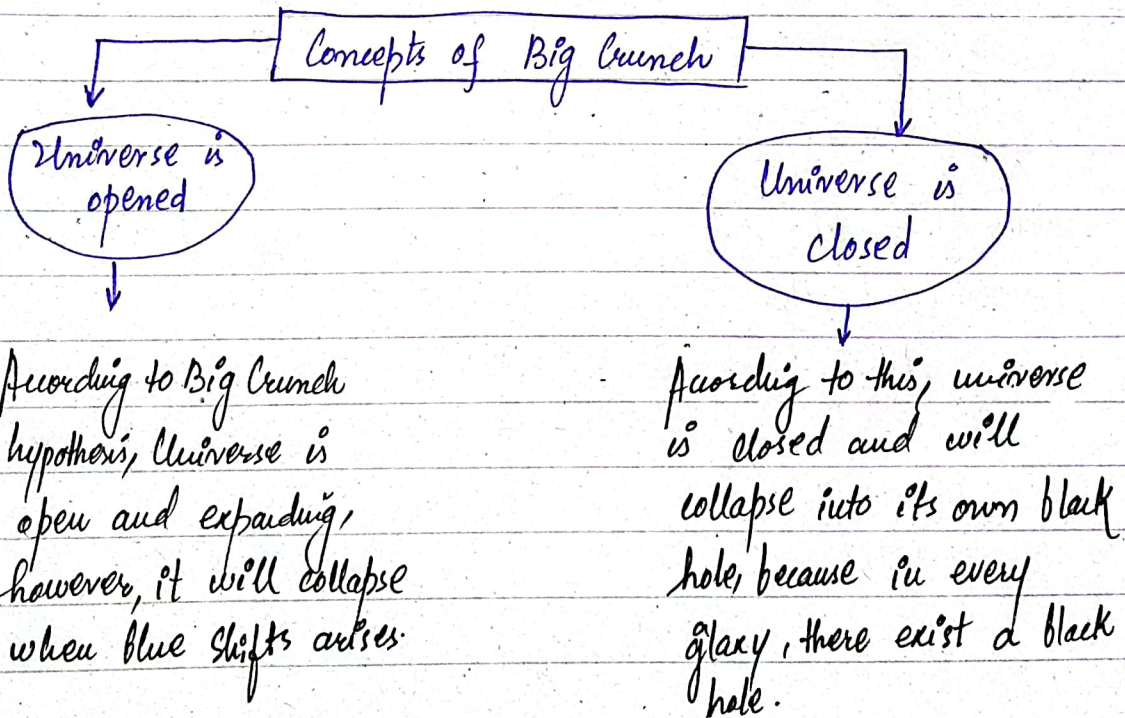 Concepts of Big Crunch
Universe is
opened
Universe is
closed
According to Big Crunch
hypothesis, Universe is
open and expanding,
however, it will collapse
when blue shifts arises.
According to this, universe
is closed and will
collapse into its own black
hole, because in every
glaxy, there exist a black
hole.